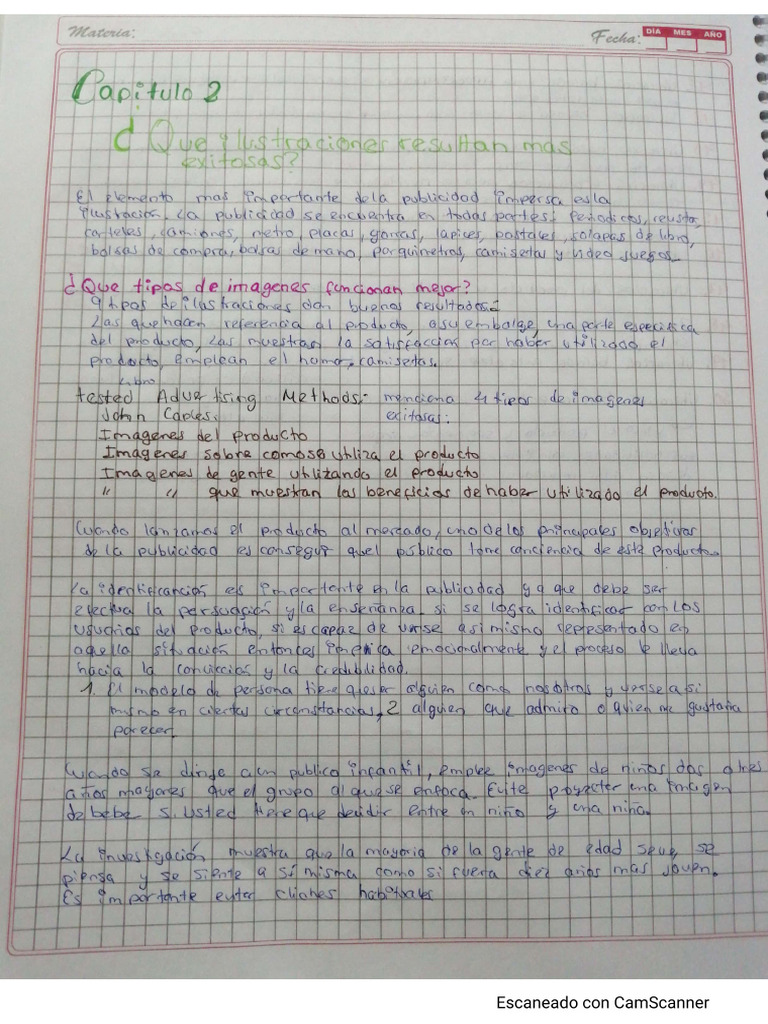 Materia:
Fecha:
DÍA MES AÑO
Capitulo 2
¿Que ilustraciones resultan mas
exitosas?
El elemento mas importante dela publicidad impersa es la
ilustración. La publicidad se encuentra en todas partes: Periodicos, revistas,
carteles, camiones, metro, placas, gorras, lapices, postales, solapas de libro,
bolsas de compra, bolsa de mano, parquimetros, camisetas y video juegos.
¿Que tipos de imagenes funcionan mejor?
9 tipos de ilustraciones dan buenos resultados:
Las que hacen referencia al producto, a su embalge, una parte especifica
del producto, Las muestran la satisfaccias por haber utilizado el
producto, emplean el homo, camisetas.
Libro
tested Advertising Methods: menciona 4 tipos de imagenes
John Caples. exitosas:
Imagenes del producto
Imagenes sobre como se utiliza el producto
Imagenes de gente utilizando el producto
" " que muestran los beneficios de haber utilizado el producto.
Cuando lanzamos el producto al mercado, uno de los principales objetivos
de la publicidad es conseguir quel publico tone conciencia de este producto.
La identificancion es importante en la publicidad ya que debe ser
efectua la persuación y la enseñanza. si se logra identificar con los
usuarios del producto, si es capaz de verse asi mismo representado en
aquella situación entonces implica emocionalmente y el proceso le lleva
hacia la conviccios y la credibilidad.
1. El modelo de persona tiene que ser alguien como nosotros y verse a si
mismo en ciertas circunstancias, 2 alguien que admiro o quien me gustaria
parecer.
Cuando se dirige a un publico infantil, emplee imagenes de niños dos o tres
años mayores que el grupo al que se enfoca. Evite poyectar una imagen
de bebe s. usted tiene que decidir entre un niño y una niña.
La investigación muestra que la mayoria de la gente de edad se ve, se
piensa y se siente a sí misma como si fuera diez años mas joven.
Es importante evitar cliches habituales
Escaneado con CamScanner